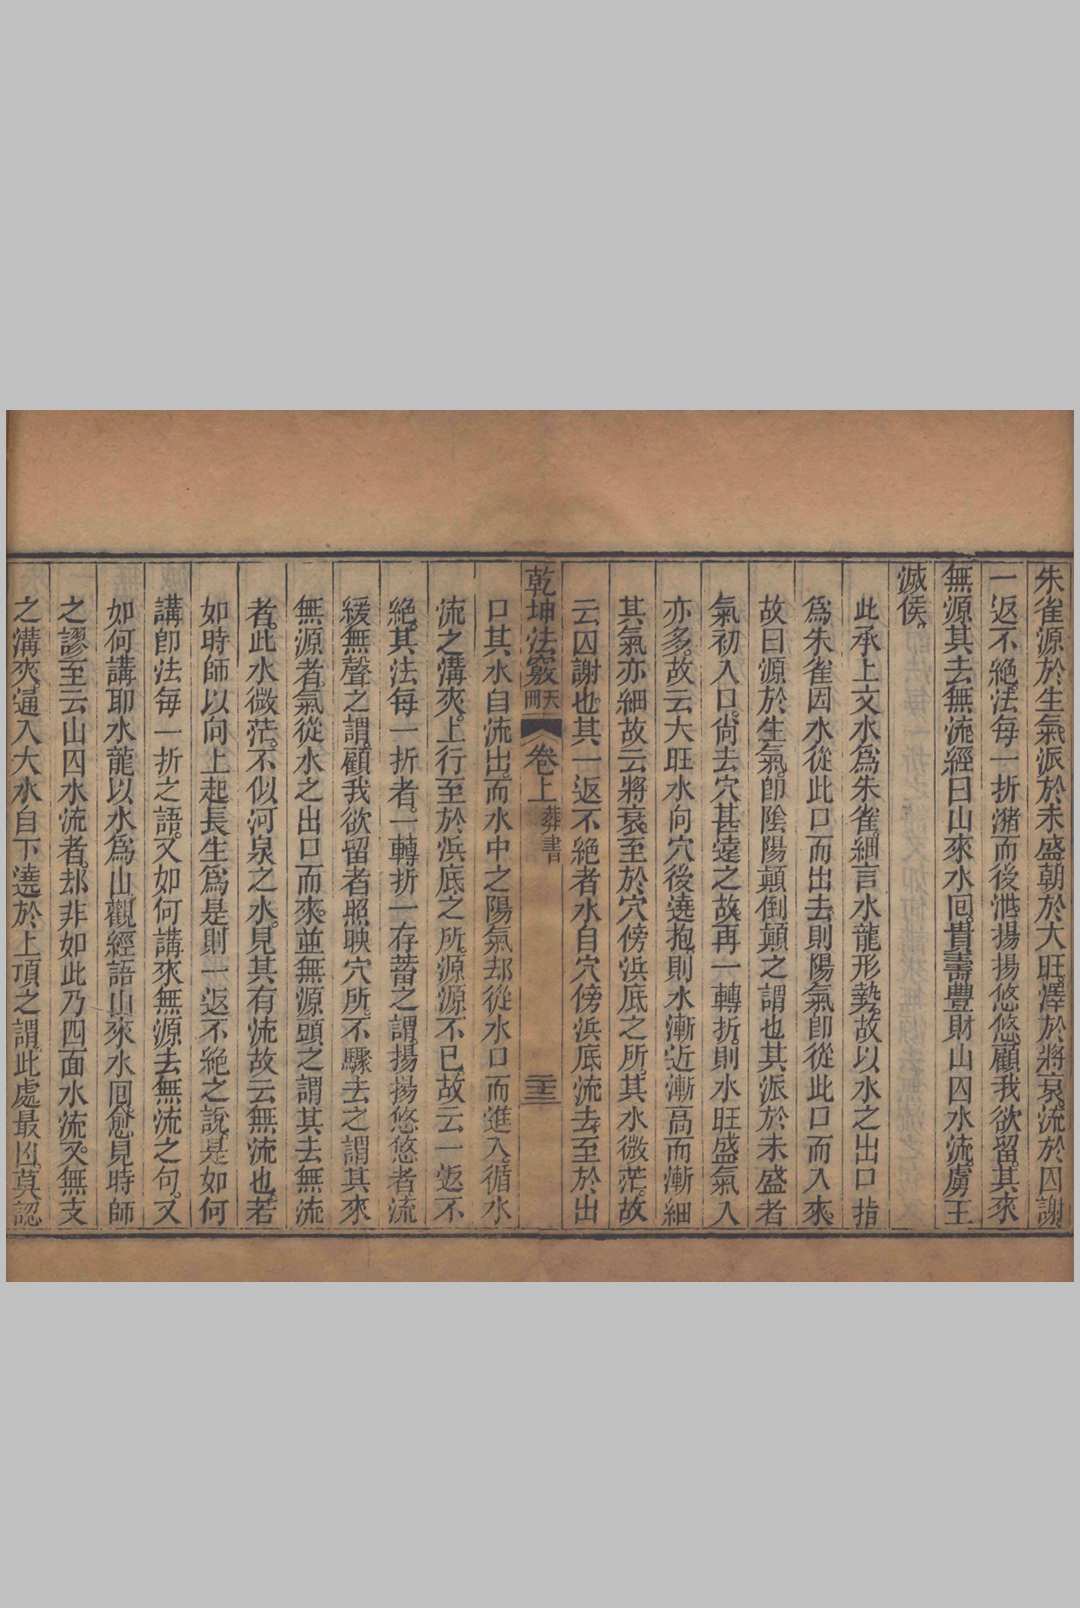 朱雀源於生氣派於未盛朝於大旺澤於將衰流於囚謝
一返不絕法每一折瀦而後泄揚揚悠悠顧我欲留其來
無源其去無流經曰山來水回貴壽豐財山囚水流虜王
滅侯
此承上文水爲朱雀細言水龍形勢故以水之出口指
爲朱雀因水從此口而出去則陽氣卽從此口而入來
故曰源於生氣卽陰陽顛倒顛之謂也其派於未盛者
氣初入口尙去穴甚遠之故再一轉折則水旺盛氣入
亦多故云大旺水向穴後遶抱則水漸近漸高而漸細
其氣亦細故云將衰至於穴傍浜底之所其水微茫故
云囚謝也其一返不絕者水自穴傍浜底流去至於出
乾坤法竅 天冊 卷上 葬書 二十三
口其水自流出而水中之陽氣却從水口而進入循水
流之溝夾上行至於浜底之所源源不已故云一返不
絕其法每一折者一轉折一存蓄之謂揚揚悠悠者流
緩無聲之謂顧我欲留者照映穴所不驟去之謂其來
無源者氣從水之出口而來並無源頭之謂其去無流
者此水微茫不似河泉之水見其有流故云無流也若
如時師以向上起長生爲是則一返不絕之說是如何
講卽法每一折之語又如何講來無源去無流之句又
如何講耶水龍以水爲山觀經語山來水回愈見時師
之謬至云山囚水流者却非如此乃四面水流又無支
之溝夾通入大水自下遶於上項之謂此處最凶莫認